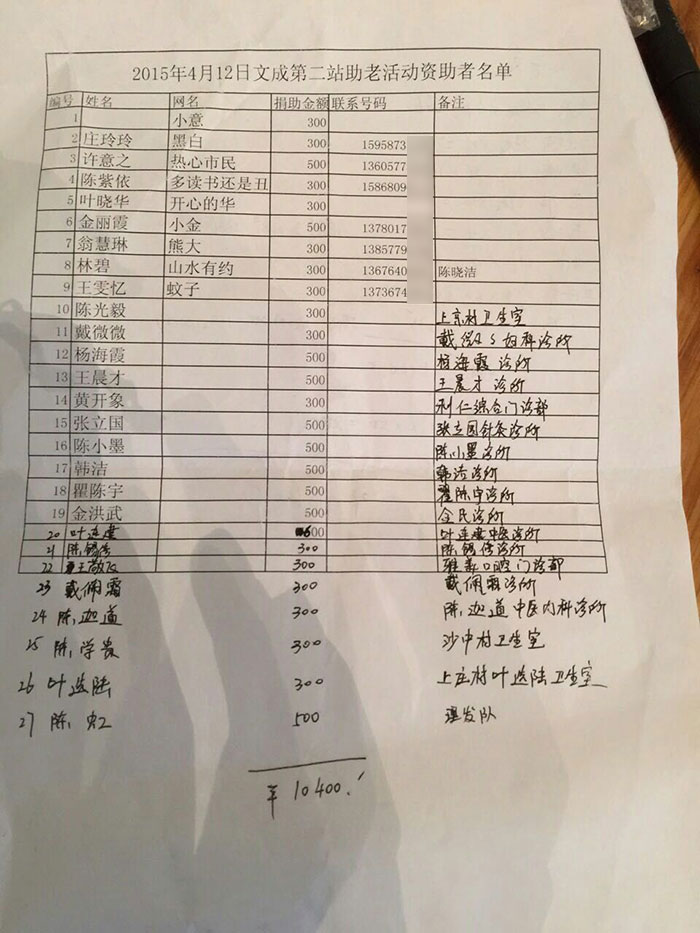 2015年4月12日文成第二站助老活动资助者名单
编号 姓名 网名 捐助金额 联系号码 备注
1 小意 300
2 庄玲玲 黑白 300 1595873
3 许意之 热心市民 500 1360577
4 陈紫依 多读书还是丑 300 1586809
5 叶晓华 开心的华 300
6 金丽霞 小金 500 1378017
7 翁慧琳 熊大 300 1385779
8 林碧 山水有约 300 1367640 陈晓洁
9 王雯忆 蚊子 300 1373674
10 陈光毅 300 上京村卫生室
11 戴微微 300 戴微微妇科诊所
12 杨海霞 500 杨海霞诊所
13 王晨才 500 王晨才诊所
14 黄开象 300 利仁综合门诊部
15 张立国 500 张立国针灸诊所
16 陈小墨 500 陈小墨诊所
17 韩洁 500 韩洁诊所
18 瞿陈宇 500 瞿陈宇诊所
19 金洪武 500 金氏诊所
20 叶连建 00 叶连建中医诊所
21 陈锡传 300 陈锡传诊所
22 王敬友 300 口腔门诊部
23 戴佩霜 300 戴佩霜诊所
24 陈迦道 300 陈迦道中医内科诊所
25 陈学贵 300 沙中村卫生室
26 叶选陆 300 上庄村叶选陆卫生室
27 陈虹 500 理发队
¥10400.